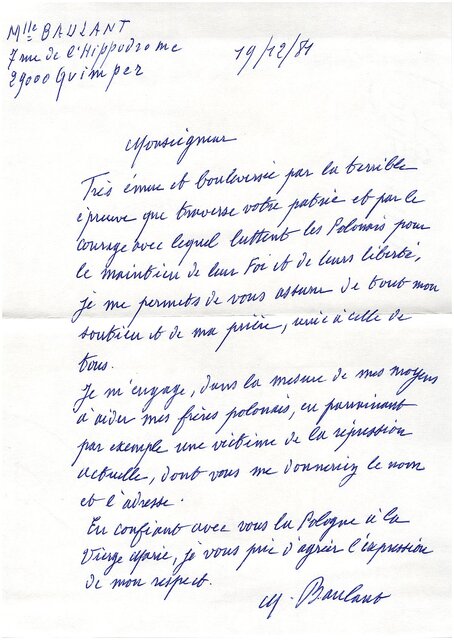 Mlle BAULANT
7 rue de l'Hippodrome
29000 Quimper
19/12/81
Monseigneur
Très émue et bouleversée par la terrible
épreuve que traverse votre patrie et par le
courage avec lequel luttent les Polonais pour
le maintien de leur Foi et de leurs liberté,
je me permets de vous assurer de tout mon
soutien et de ma prière, unie à celle de
tous.
Je m'engage, dans la mesure de mes moyens
à aider mes frères polonais, en parrainant
par exemple une victime de la répression
actuelle, dont vous me donneriez le nom
et l'adresse.
En confiant avec vous la Pologne à la
Vierge Marie, je vous prie d'agréer l'expression
de mon respect.
M. Baulant